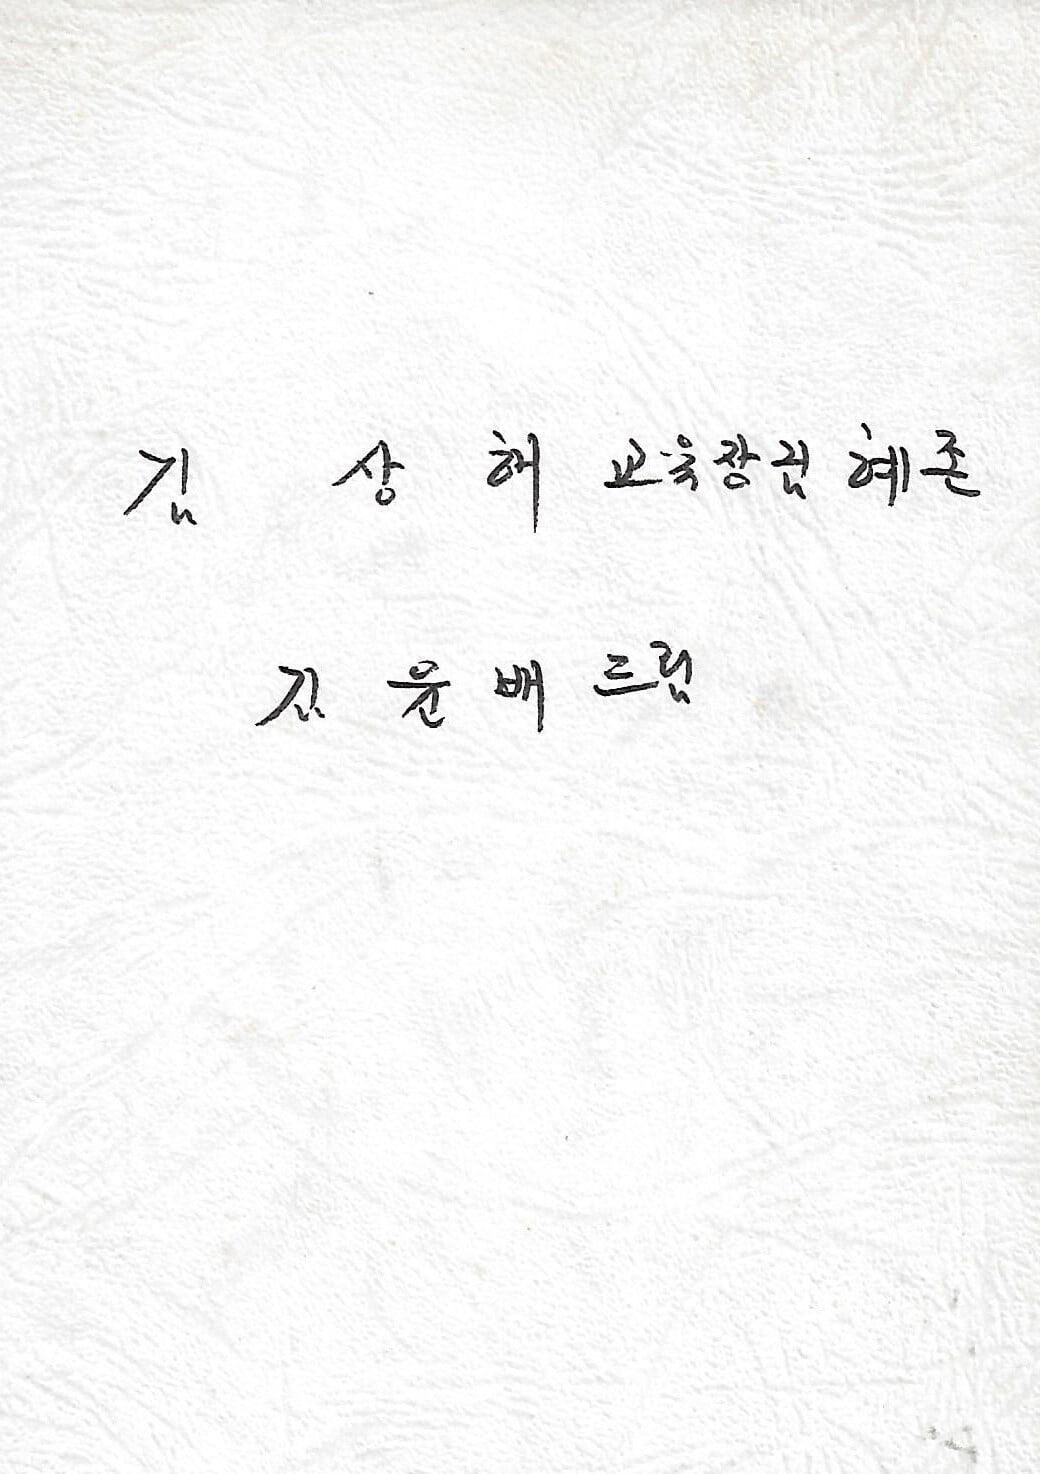 김 상 허 교육장님 혜존
김 윤 배 드림